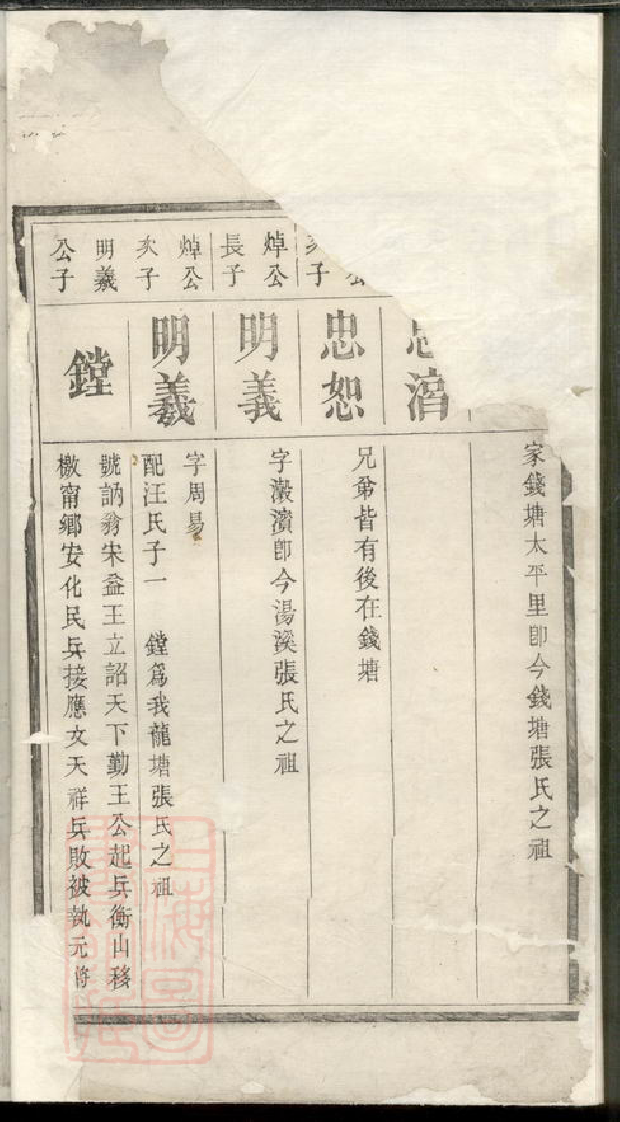 家錢塘太平里卽今錢塘張氏之祖
忠
公
子
忠恕
兄弟皆有後在錢塘
焯公
長子
明義
字瀫濱卽今湯溪張氏之祖
焯公
次子
明羲
字周易
配汪氏子一　鏜爲我龍塘張氏之祖
明羲
公子
鏜
號訥翁宋益王立詔天下勤王公起兵衡山移
檄甯鄉安化民兵接應文天祥兵敗被執元將
上海圖
書館藏